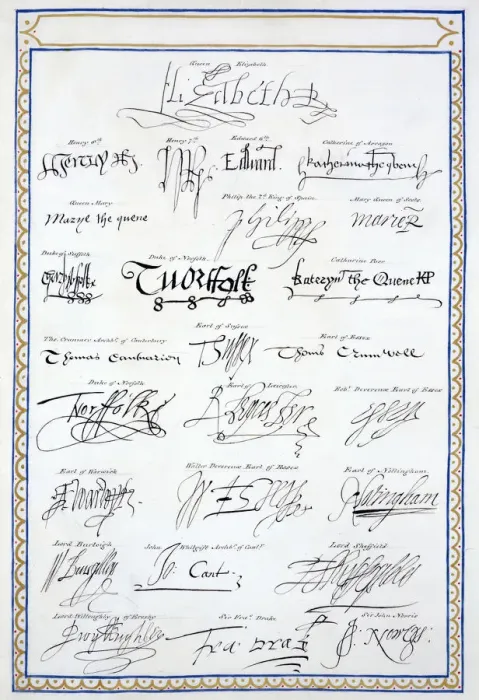 Queen Elizabeth
Elizabeth R
Henry 8th Henry 7th Edward 6th Catharine of Arragon
Henry R. Edward. Katherina the qwene
Queen Mary Philip the 2d King of Spain Mary Queen of Scots
Marye the quene Philipp Marie R
Duke of Suffolk Duke of Norfolk Catharine Parr
T Norffolk Kateryn the Quene KP
Tho Cranmer Archbp of Canterbury Earl of Sussex Earl of Essex
Thomas Cantuarien T Sussex Thoms Crumwell
Duke of Norfolk Earl of Leicester Robt Devereux Earl of Essex
Norffolk R Leycester Essex
Earl of Warwick Walter Devereux Earl of Essex Earl of Nottingham
Warwyk W Essex Notingham
Lord Burleigh John Whitgift Archbp of Canty Lord Sheffield
W Burghley Jo: Cant. Sheffeild
Lord Willoughby of Eresby Sir Fras Drake Sir John Norris
Fra Drak J. Norreys